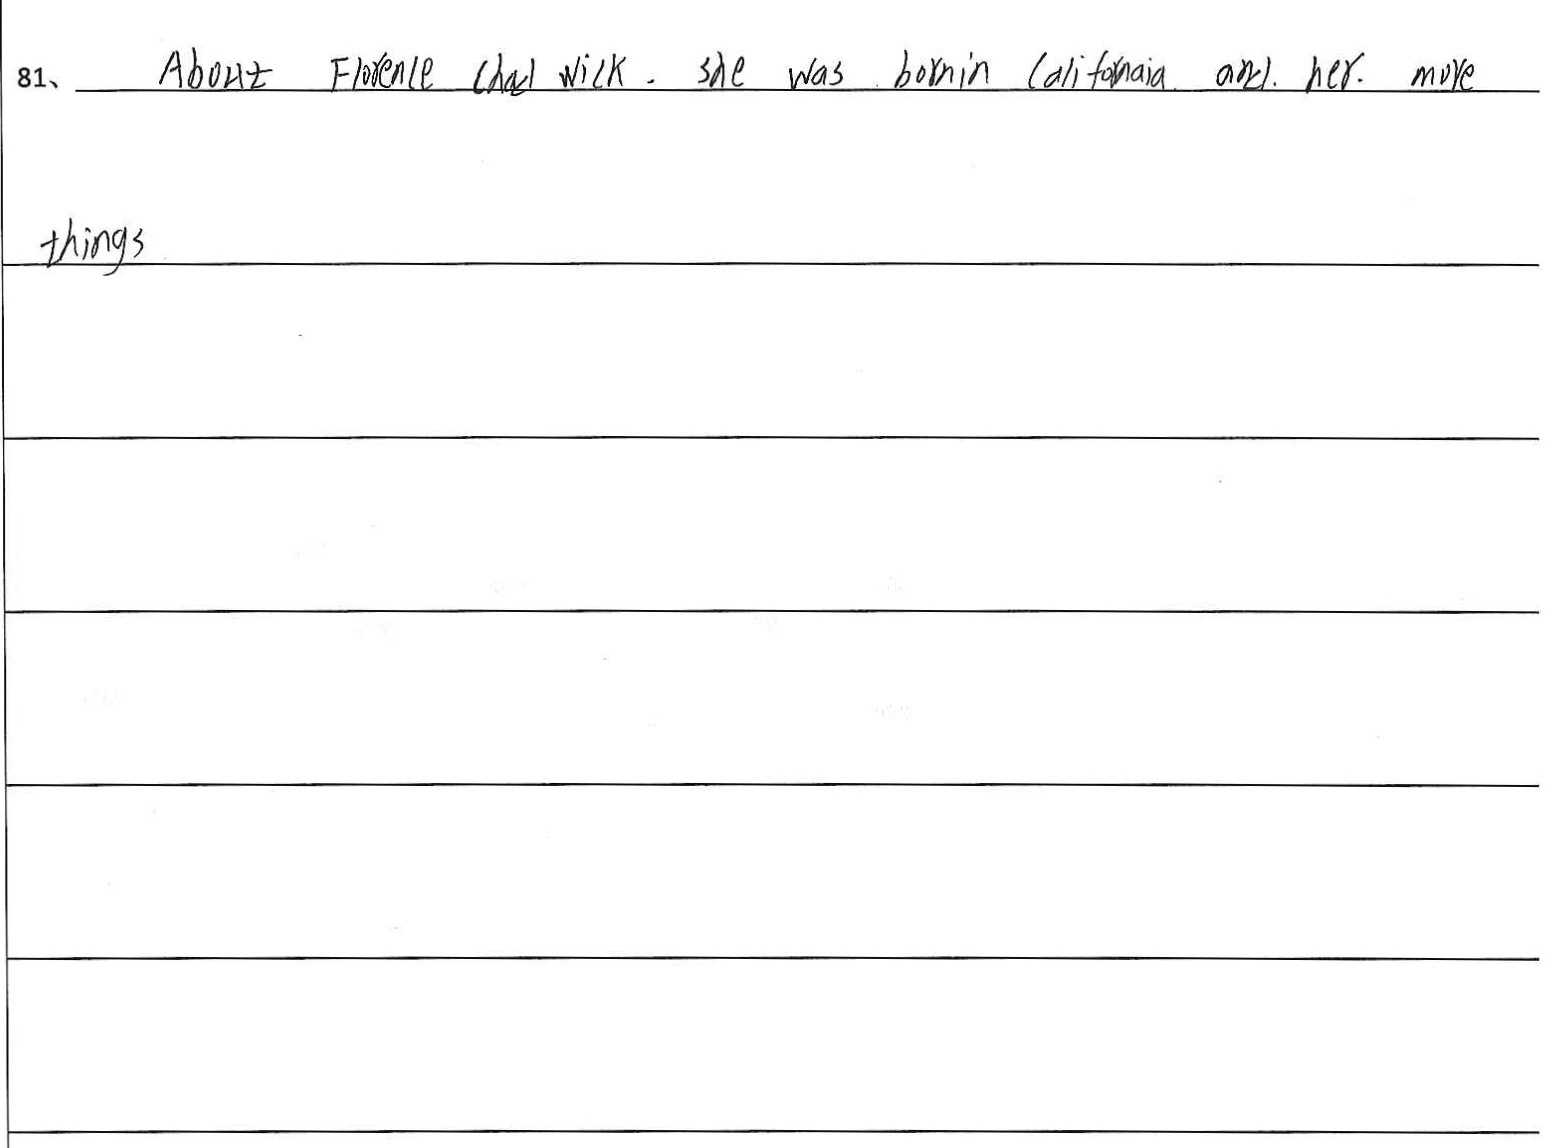 81、 About Florence Chad wick. she was bornin Califonaia and. her. more
things